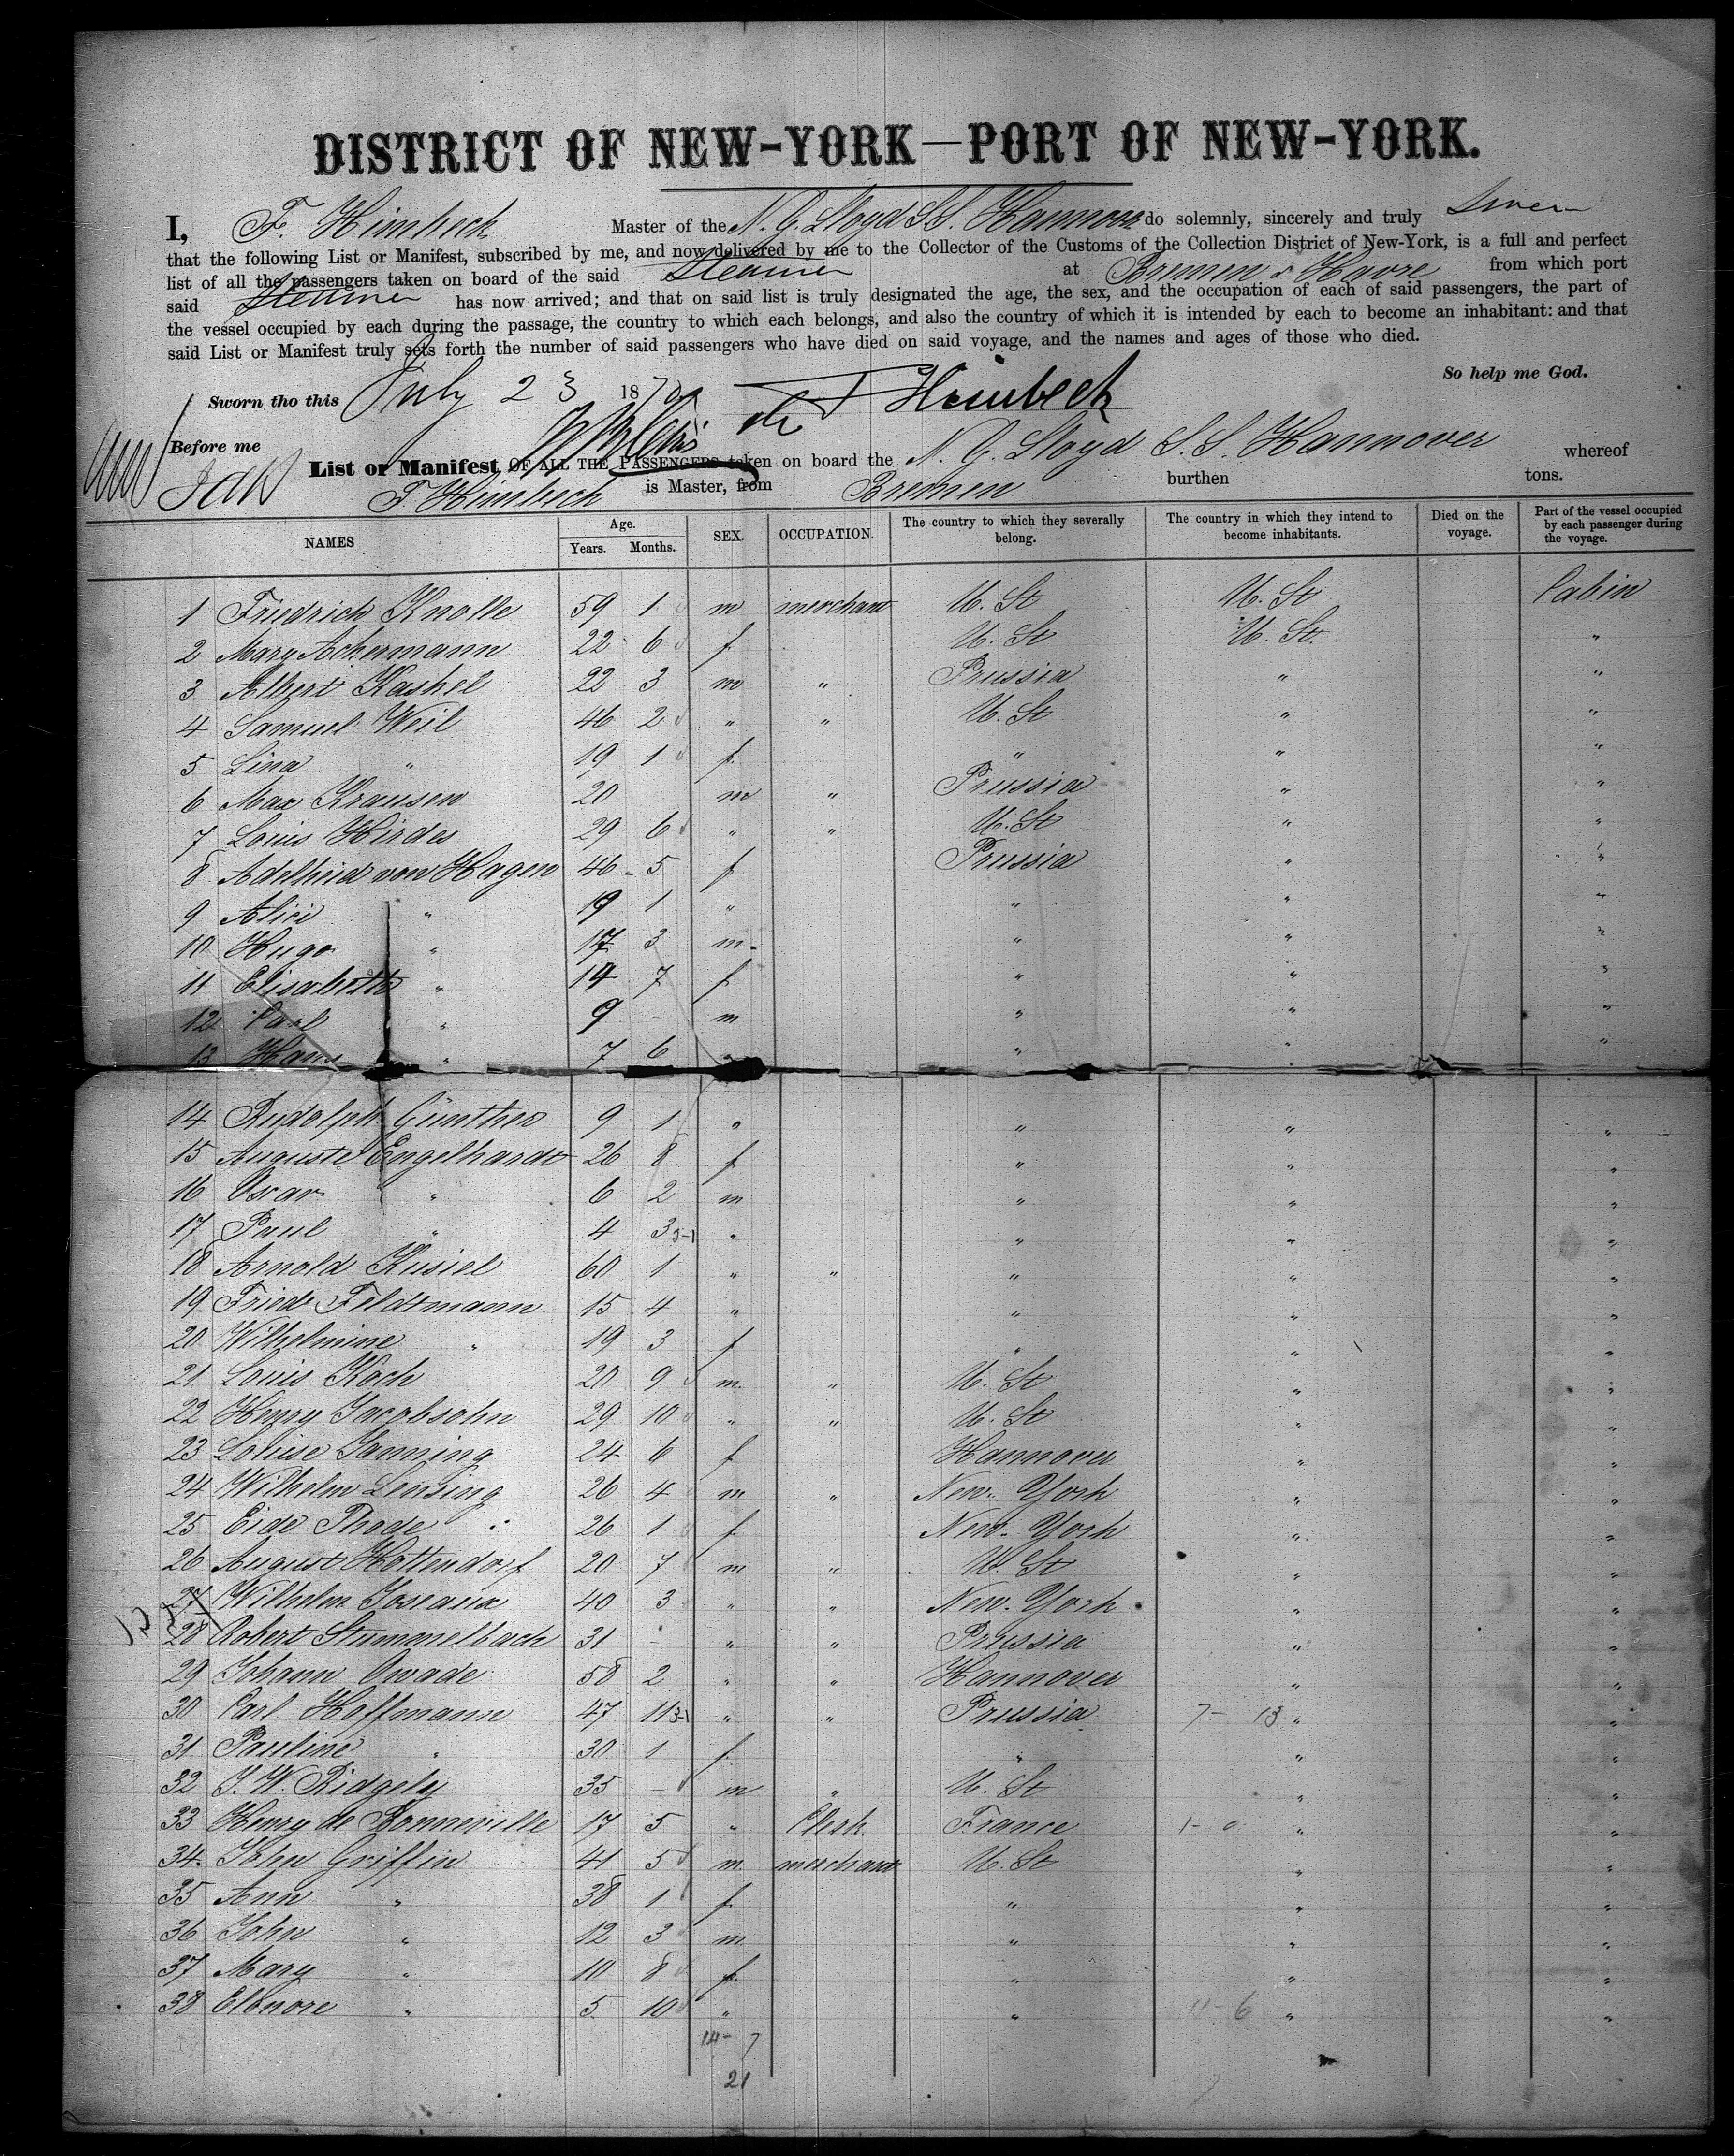 DISTRICT OF NEW-YORK—PORT OF NEW-YORK.
I, F. Himbeck Master of the N. G. Lloyd S.S. Hannover do solemnly, sincerely and truly Swear
that the following List or Manifest, subscribed by me, and now delivered by me to the Collector of the Customs of the Collection District of New-York, is a full and perfect
list of all the passengers taken on board of the said Steamer at Bremen & Havre from which port
said Steamer has now arrived; and that on said list is truly designated the age, the sex, and the occupation of each of said passengers, the part of
the vessel occupied by each during the passage, the country to which each belongs, and also the country of which it is intended by each to become an inhabitant: and that
said List or Manifest truly sets forth the number of said passengers who have died on said voyage, and the names and ages of those who died.
So help me God.
Sworn tho this July 23 1870 F Himbeck
Before me
List or Manifest OF ALL THE PASSENGERS taken on board the N. G. Lloyd S. S. Hannover whereof
F. Himbeck is Master, from Bremen burthen tons.
NAMES Age. Years. Months. SEX. OCCUPATION. The country to which they severally belong. The country in which they intend to become inhabitants. Died on the voyage. Part of the vessel occupied by each passenger during the voyage.
1 Friedrich Knolle 59 1 m merchant U. St U. St Cabin
2 Mary Achermann 22 6 f U. St U. St. "
3 Albert Kashel 22 3 m " Prussia " "
4 Samuel Weil 46 2 " " U. St " "
5 Lina " 19 1 f " " "
6 Max Krausen 20 m " Prussia " "
7 Louis Hirdes 29 6 " " U. St " "
8 Adelheid von Hagen 46 - 5 f Prussia " "
9 Alice " 19 1 " " " "
10 Hugo " 17 3 m. " " "
11 Elisabeth " 14 7 f " " "
12 Carl " 9 - m " " "
13 Hans " 7 6 " " "
14 Rudolph Günther 9 1 " " " "
15 Auguste Engelhardt 26 8 f " " "
16 Oscar " 6 2 m " " "
17 Paul " 4 3 5-1 " " " "
18 Arnold Kusiel 60 1 " " " " "
19 Fried. Feldtmann 15 4 " " " "
20 Wilhelmine " 19 3 f " " "
21 Louis Koch 20 9 m. " U. St " "
22 Henry Jacobsohn 29 10 " " U. St " "
23 Louise Janning 24 6 f Hannover " "
24 Wilhelm Lensing 26 4 m " New-York " "
25 Eide Thode 26 1 f New-York " "
26 August Hottendorf 20 7 m " U. St " "
27 Wilhelm Joseaux 40 3 " " New-York " "
28 Robert Stummelbach 31 - " " Prussia " "
29 Johann Qwade 58 2 " " Hannover " "
30 Carl Hoffmann 47 11 3-1 " " Prussia 7- 13 " "
31 Pauline " 30 1 f " " "
32 J. W. Ridgely 35 - m " U. St " "
33 Henry de Bonneville 17 5 " Clerk. France 1- 0 " "
34. John Griffin 41 5 m. merchant U. St " "
35 Ann " 38 1 f " " "
36 John " 12 3 m. " " "
37 Mary " 10 8 f. " " "
38 Elenore " 5 10 " " 11-6 " "
14- 7
21